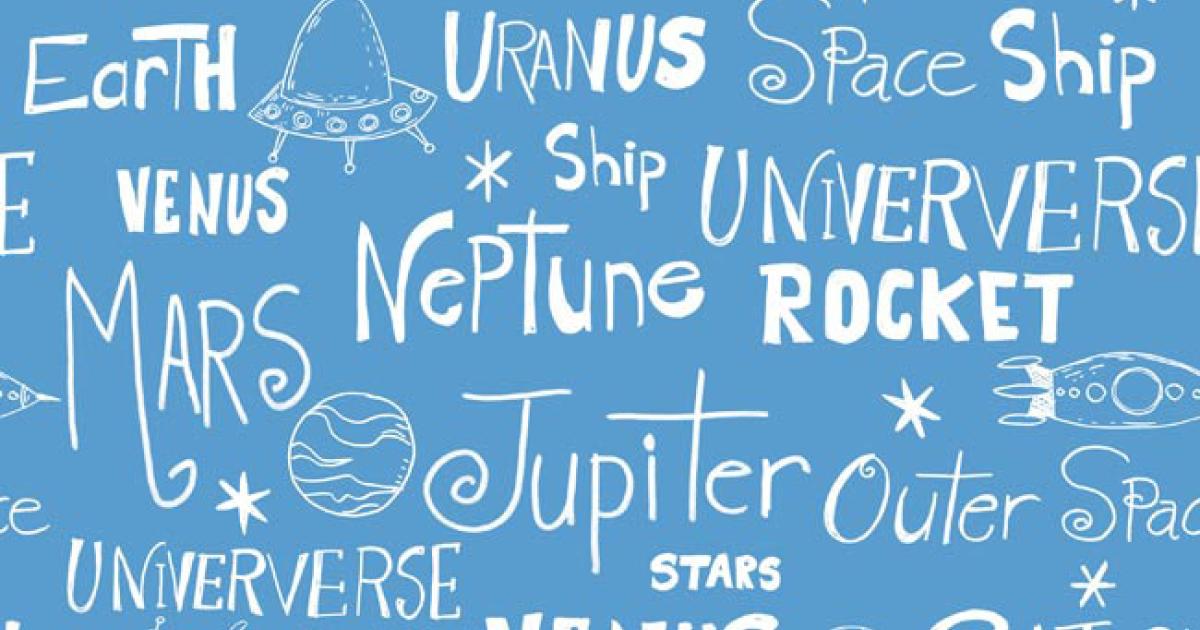 EarTH
URANUS
Space Ship
Ship
E
VENUS
UNIVERVERSE
NePTune
ROCKET
MARS
Jupiter
Outer Spac
ce
UNIVERVERSE
STARS
VENUS